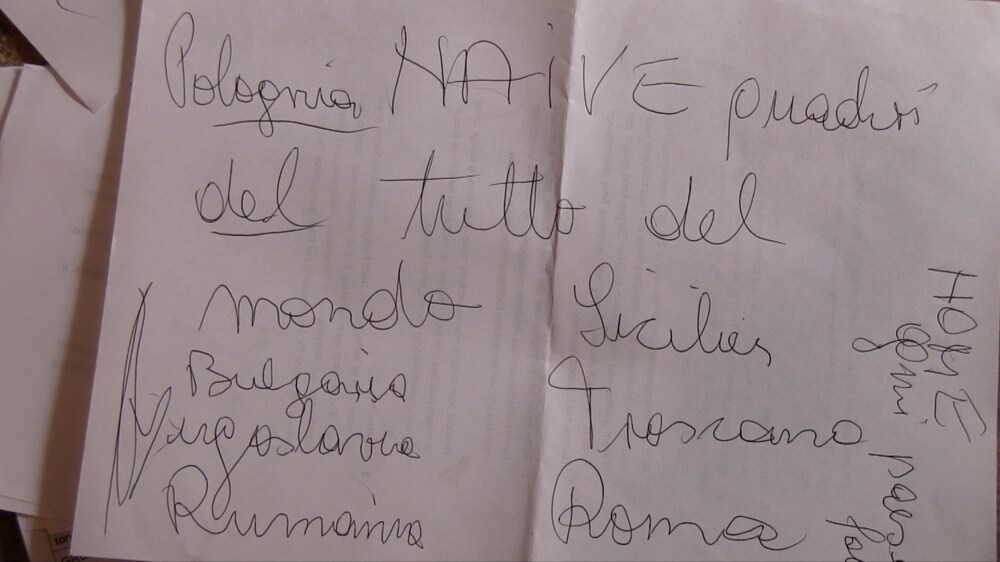 Polognia NAiVE quadri
del tutto del
mondo Sicilia
Bulgaria
Jugoslavia Troscana
Rumania Roma
HOME
ogni